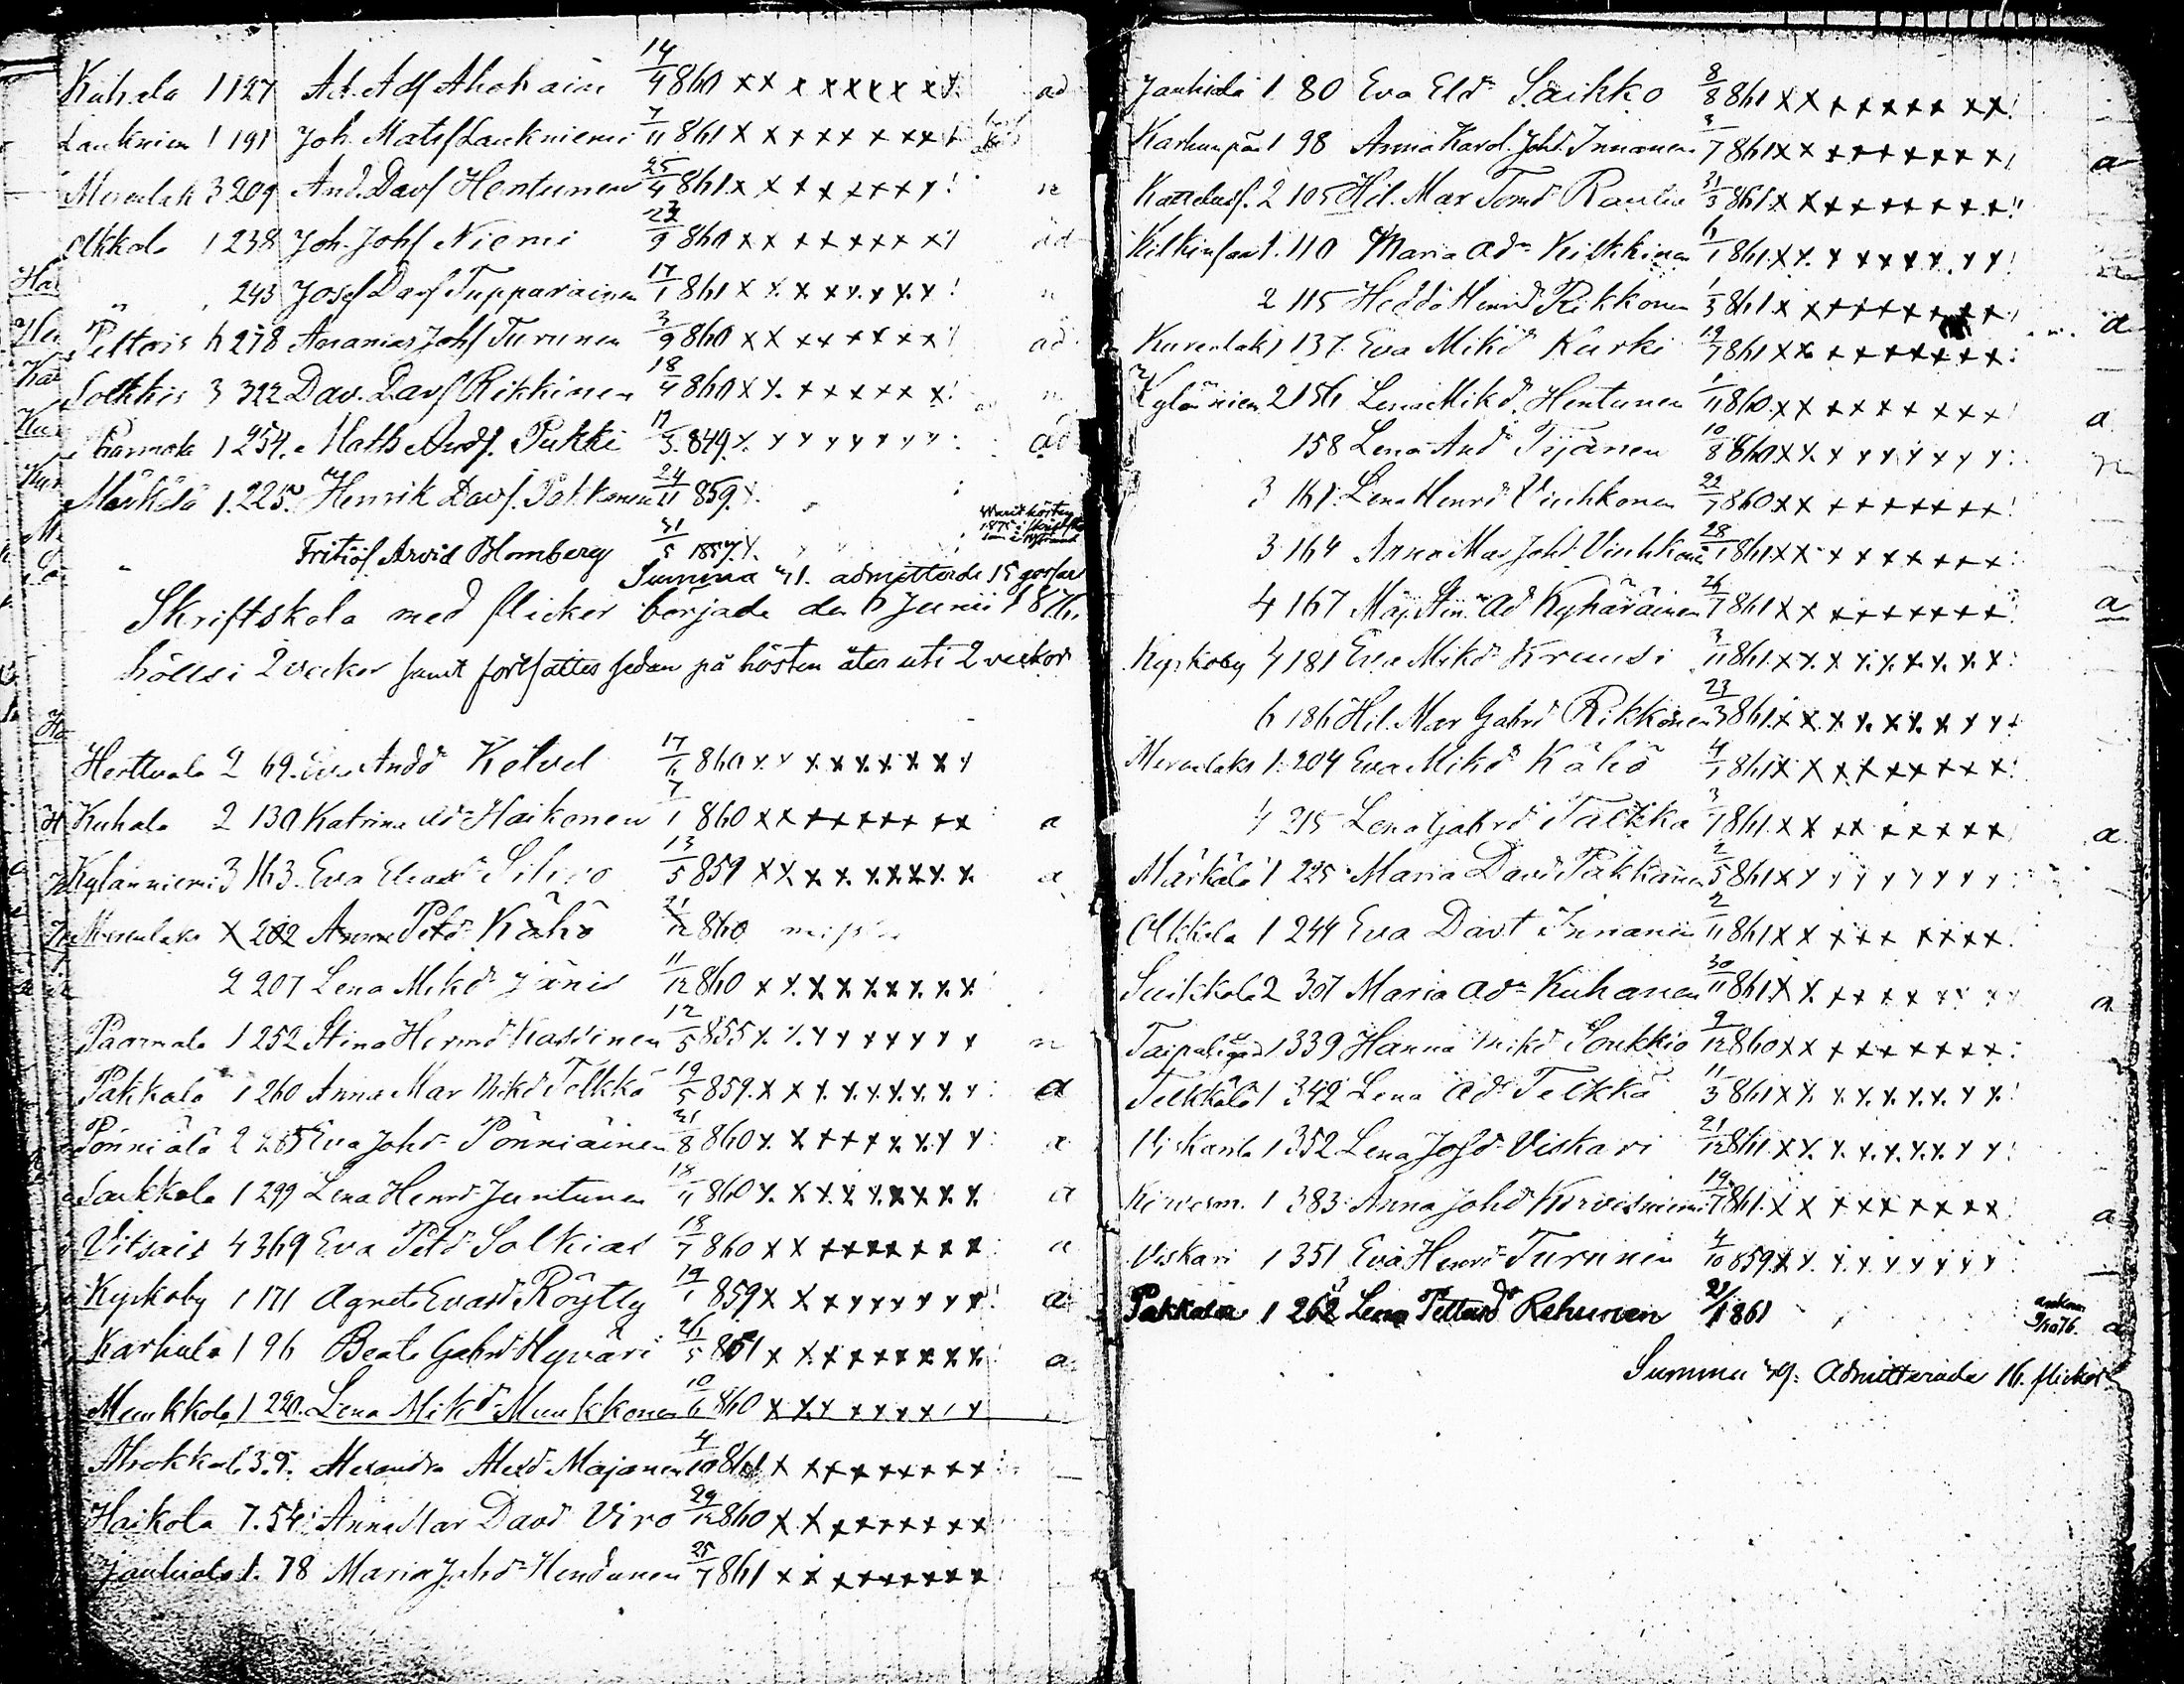 Kuhala 1 127 Ad. Adf Ahokain 14/4 860 x x x x x x x x x ad
Laukniem 1 191 Joh. Matsf Laukniemi 7/11 861 x x x x x x x x x
Merenlak 3 209 And. Davf Hentunen 25/4 861 x x x x x x x x n
Olkkola 1 238 Joh. Johf Niemi 23/9 860 x x x x x x x x ad
" 243 Josef Davf Tupparainen 17/1 861 x x x x x x x x n
Peltois 6 278 Ananias Johf Turunen 3/9 860 x x x x x x x x ad
Solkkis 3 322 Dav. Davf Rikkinen 18/4 860 x x x x x x x x n
Paarmala 1 254. Maths Andf. Pukki 17/3 849 x x x x x x x x ad
Märkälä 1. 225. Henrik Davf. Pakkanen 24/11 859 x
" Fritiof Arvid Blomberg 31/5 1857 x
Summa 41. admitterade 15 gossar
Skriftskola med flickor började den 6 Junii 1876,
hölls i 2 veckor samt fortsattes sedan på hösten åter uti 2 veckor
Herttuala 2 69. Eva Andd Kelvel 17/6 860 x x x x x x x x x
Kuhala 2 130 Katrina Add Haikonen 7/1 860 x x x x x x x x x a
Kylänniemi 3 163. Eva Eliasd Silvo 13/5 859 x x x x x x x x x a
Merenlaks 1 202 Anna Petd Kähö 21/12 860
2 207 Lena Mikd Jänis 11/12 860 x x x x x x x x x
Paarmala 1 252 Stina Hermd Kassinen 12/5 855 x x x x x x x x x n
Pakkala 1 260 Anna Mar Mikd Telkkä 19/5 859 x x x x x x x x x a
Pönniälä 2 265 Eva Johd Pönniäinen 31/8 860 x x x x x x x x x a
Saikkala 1 299 Lena Henrd Juntunen 18/11 860 x x x x x x x x x a
Vitsais 4 369 Eva Petd Solkias 18/7 860 x x x x x x x x x a
Kyrkoby 1 171 Agneta Evasd Röytty 19/1 859 x x x x x x x x x a
Karhula 1 96 Beata Gabrd Hyväri 26/5 861 x x x x x x x x x a
Munkkola 1 220. Lena Mikd Munkkonen 10/6 860 x x x x x x x x x
Ahokkala 3. 9. Alexandra Alexd Majanen 4/10 861 x x x x x x x x x
Haikola 7. 54. Anna Mar Davd Viro 29/12 860 x x x x x x x x x
Jauhiala 1. 78 Maria Johd Hendunen 25/7 861 x x x x x x x x x
Jauhiala 1 80 Eva Eld Saikko 8/8 861 x x x x x x x x x
Karhunpää 1 98 Anna Karol. Johd. Innanen 7 861 x x x x x x x x x a
Kattelusf. 2 105 Hel. Mar Tomd Rautia 31/3 861 x x x x x x x x x
Kilkinsaar 1. 110 Maria Add Kilkkinen 1 861 x x x x x x x x x n
2 115 Hedda Henrd Rikkonen 1/3 861 x x x x x x x x x a
Kurenlak 1 137. Eva Mikd Kurki 19/7 861 x x x x x x x x x
Kylänniem 2 156 Lena Mikd. Hentunen 1/11 860 x x x x x x x x x a
158 Lena Andd Tijanen 10/8 860 x x x x x x x x x n
3 161. Lena Henrd Vuohkonen 22/7 860 x x x x x x x x x
3 164 Anna Mar Johd. Vuohkone 28/1 861 x x x x x x x x x
4 167 Maj. Stin. Add Kyhäräinen 26/7 861 x x x x x x x x x a
Kyrkoby 4 181 Eva Mikd Kruusi 3/11 861 x x x x x x x x x
6 186 Hel. Mar Gabrd Rikkonen 23/3 861 x x x x x x x x x
Merenlaks 1. 204 Eva Mikd Kähö 4/1 861 x x x x x x x x x
4 215 Lena Gabrd Talkka 3/1 861 x x x x x x x x x a
Märkälä 1 225 Maria Davd Pakkanen 2/5 861 x x x x x x x x x
Olkkola 1 244 Eva Davt Innanen 2/11 861 x x x x x x x x x
Saikkala 2 307 Maria Add Kuhanen 30/11 861 x x x x x x x x x a
1 339 Hanna Mikd Soukkio 9/12 860 x x x x x x x x x
Telkkälä 1 342 Lena Add Telkkä 11/3 861 x x x x x x x x x
Viskarila 1 352 Lena Johd Viskari 21/12 861 x x x x x x x x x
Kirvesm. 1 383. Anna Johd Kirvesniemi 19/7 861 x x x x x x x x x a
Viskari 1 351 Eva Henrd Turunen 4/10 859 x x x x x x x x x
Pakkala 1 262 Lena Rehunen 21/1 861 a
Summa 49. Admitterade 16. flickor